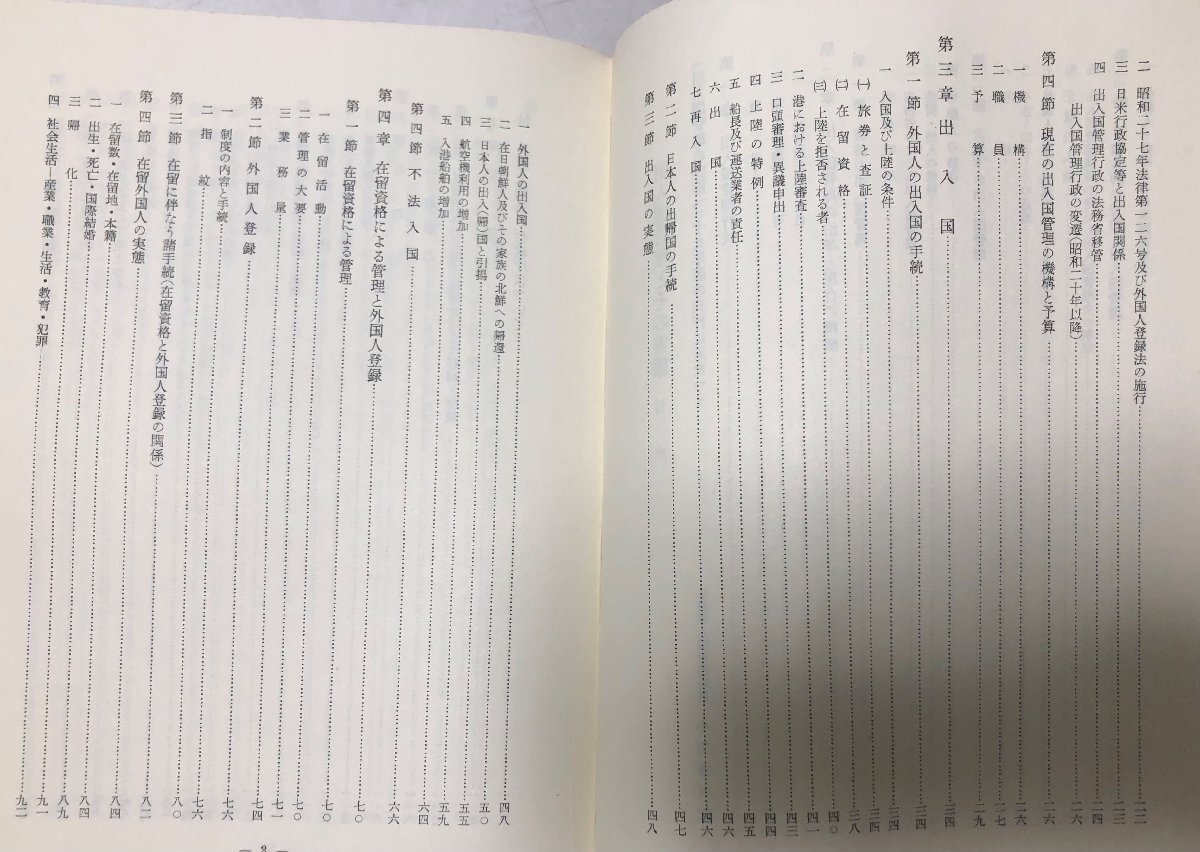 二 昭和二十七年法律第一二六号及び外国人登録法の施行……二二
三 日米行政協定等と出入国関係……二三
四 出入国管理行政の法務省移管……二四
出入国管理行政の変遷(昭和二十年以降)……二六
第四節 現在の出入国管理の機構と予算……二六
一 機構……二六
二 職員……二七
三 予算……二九
第三章 出入国……三四
第一節 外国人の出入国の手続……三四
一 入国及び上陸の条件……三四
㈠ 旅券と査証……三八
㈡ 在留資格……四〇
㈢ 上陸を拒否される者……四一
二 港における上陸審査……四三
三 口頭審理・異議申出……四四
四 上陸の特例……四四
五 船長及び運送業者の責任……四五
六 出国……四六
七 再入国……四六
第二節 日本人の出帰国の手続……四七
第三節 出入国の実態……四八
一 外国人の出入国……四八
二 在日朝鮮人及びその家族の北鮮への帰還……四九
三 日本人の出入(帰)国と引揚……五〇
四 航空機利用の増加……五五
五 入港船舶の増加……五九
第四節 不法入国……六四
第四章 在留資格による管理と外国人登録……六六
第一節 在留資格による管理……七〇
一 在留活動……七〇
二 管理の大要……七〇
三 業務量……七一
第二節 外国人登録……七四
一 制度の内容と手続……七六
二 指紋……七六
第三節 在留に伴なう諸手続(在留資格と外国人登録の関係)……八〇
第四節 在留外国人の実態……八二
一 在留数・在留地・本籍……八四
二 出生・死亡・国際結婚……八四
三 帰化……八九
四 社会生活—産業・職業・生活・教育・犯罪……九一
九二
— 3 —